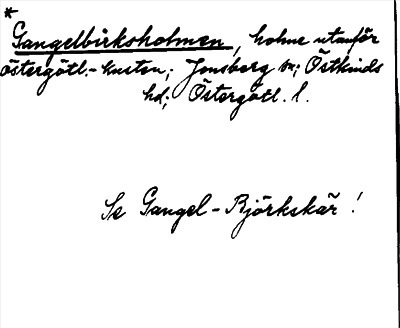 *
Gangelbirksholmen, holme utanför
östergötl.-kusten; Jonsberg sn; Östkinds
hd; Östergötl. l.
Se Gangel-Björkskär!